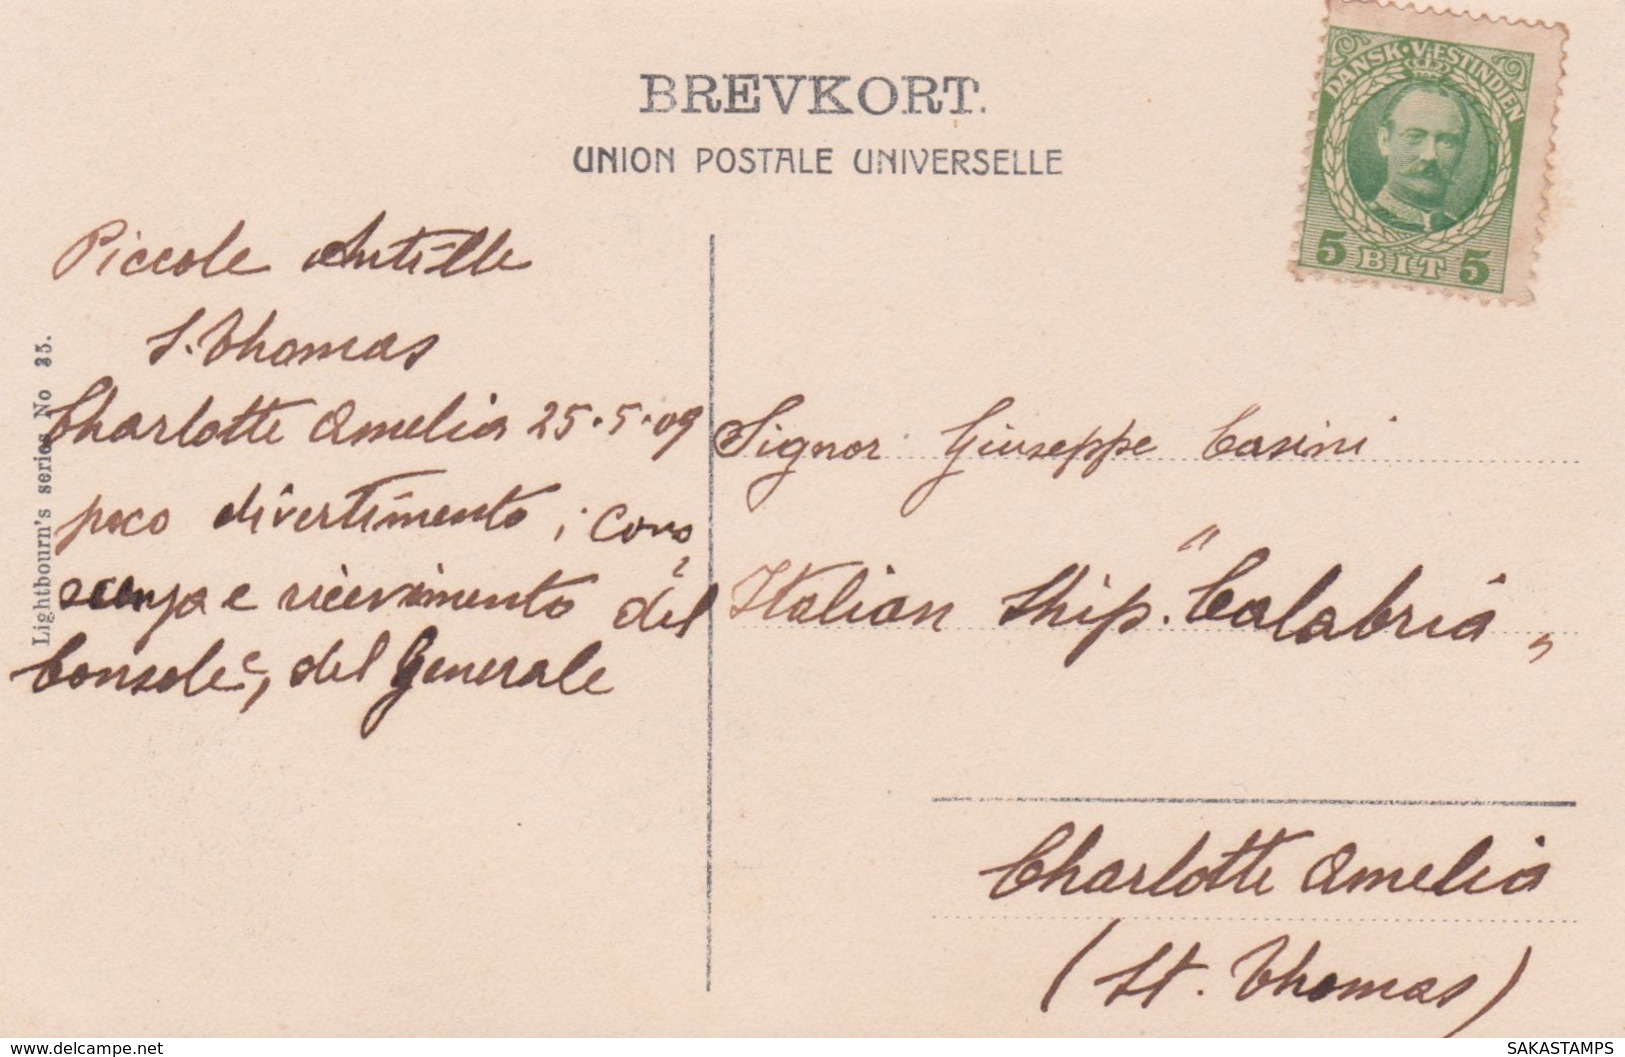 BREVKORT.
UNION POSTALE UNIVERSELLE
DANSK·VESTINDIEN
5 BIT 5
Piccole Antille
S. Thomas
Charlotte Amelia 25·5·09
poco divertimento; cono
scenza e ricevimento del
Console, del Generale
Lightbourn's series No 35.
Signor Giuseppe Casini
Italian Ship. "Calabria„
Charlotte Amelia
(St. Thomas)
www.delcampe.net
SAKASTAMPS